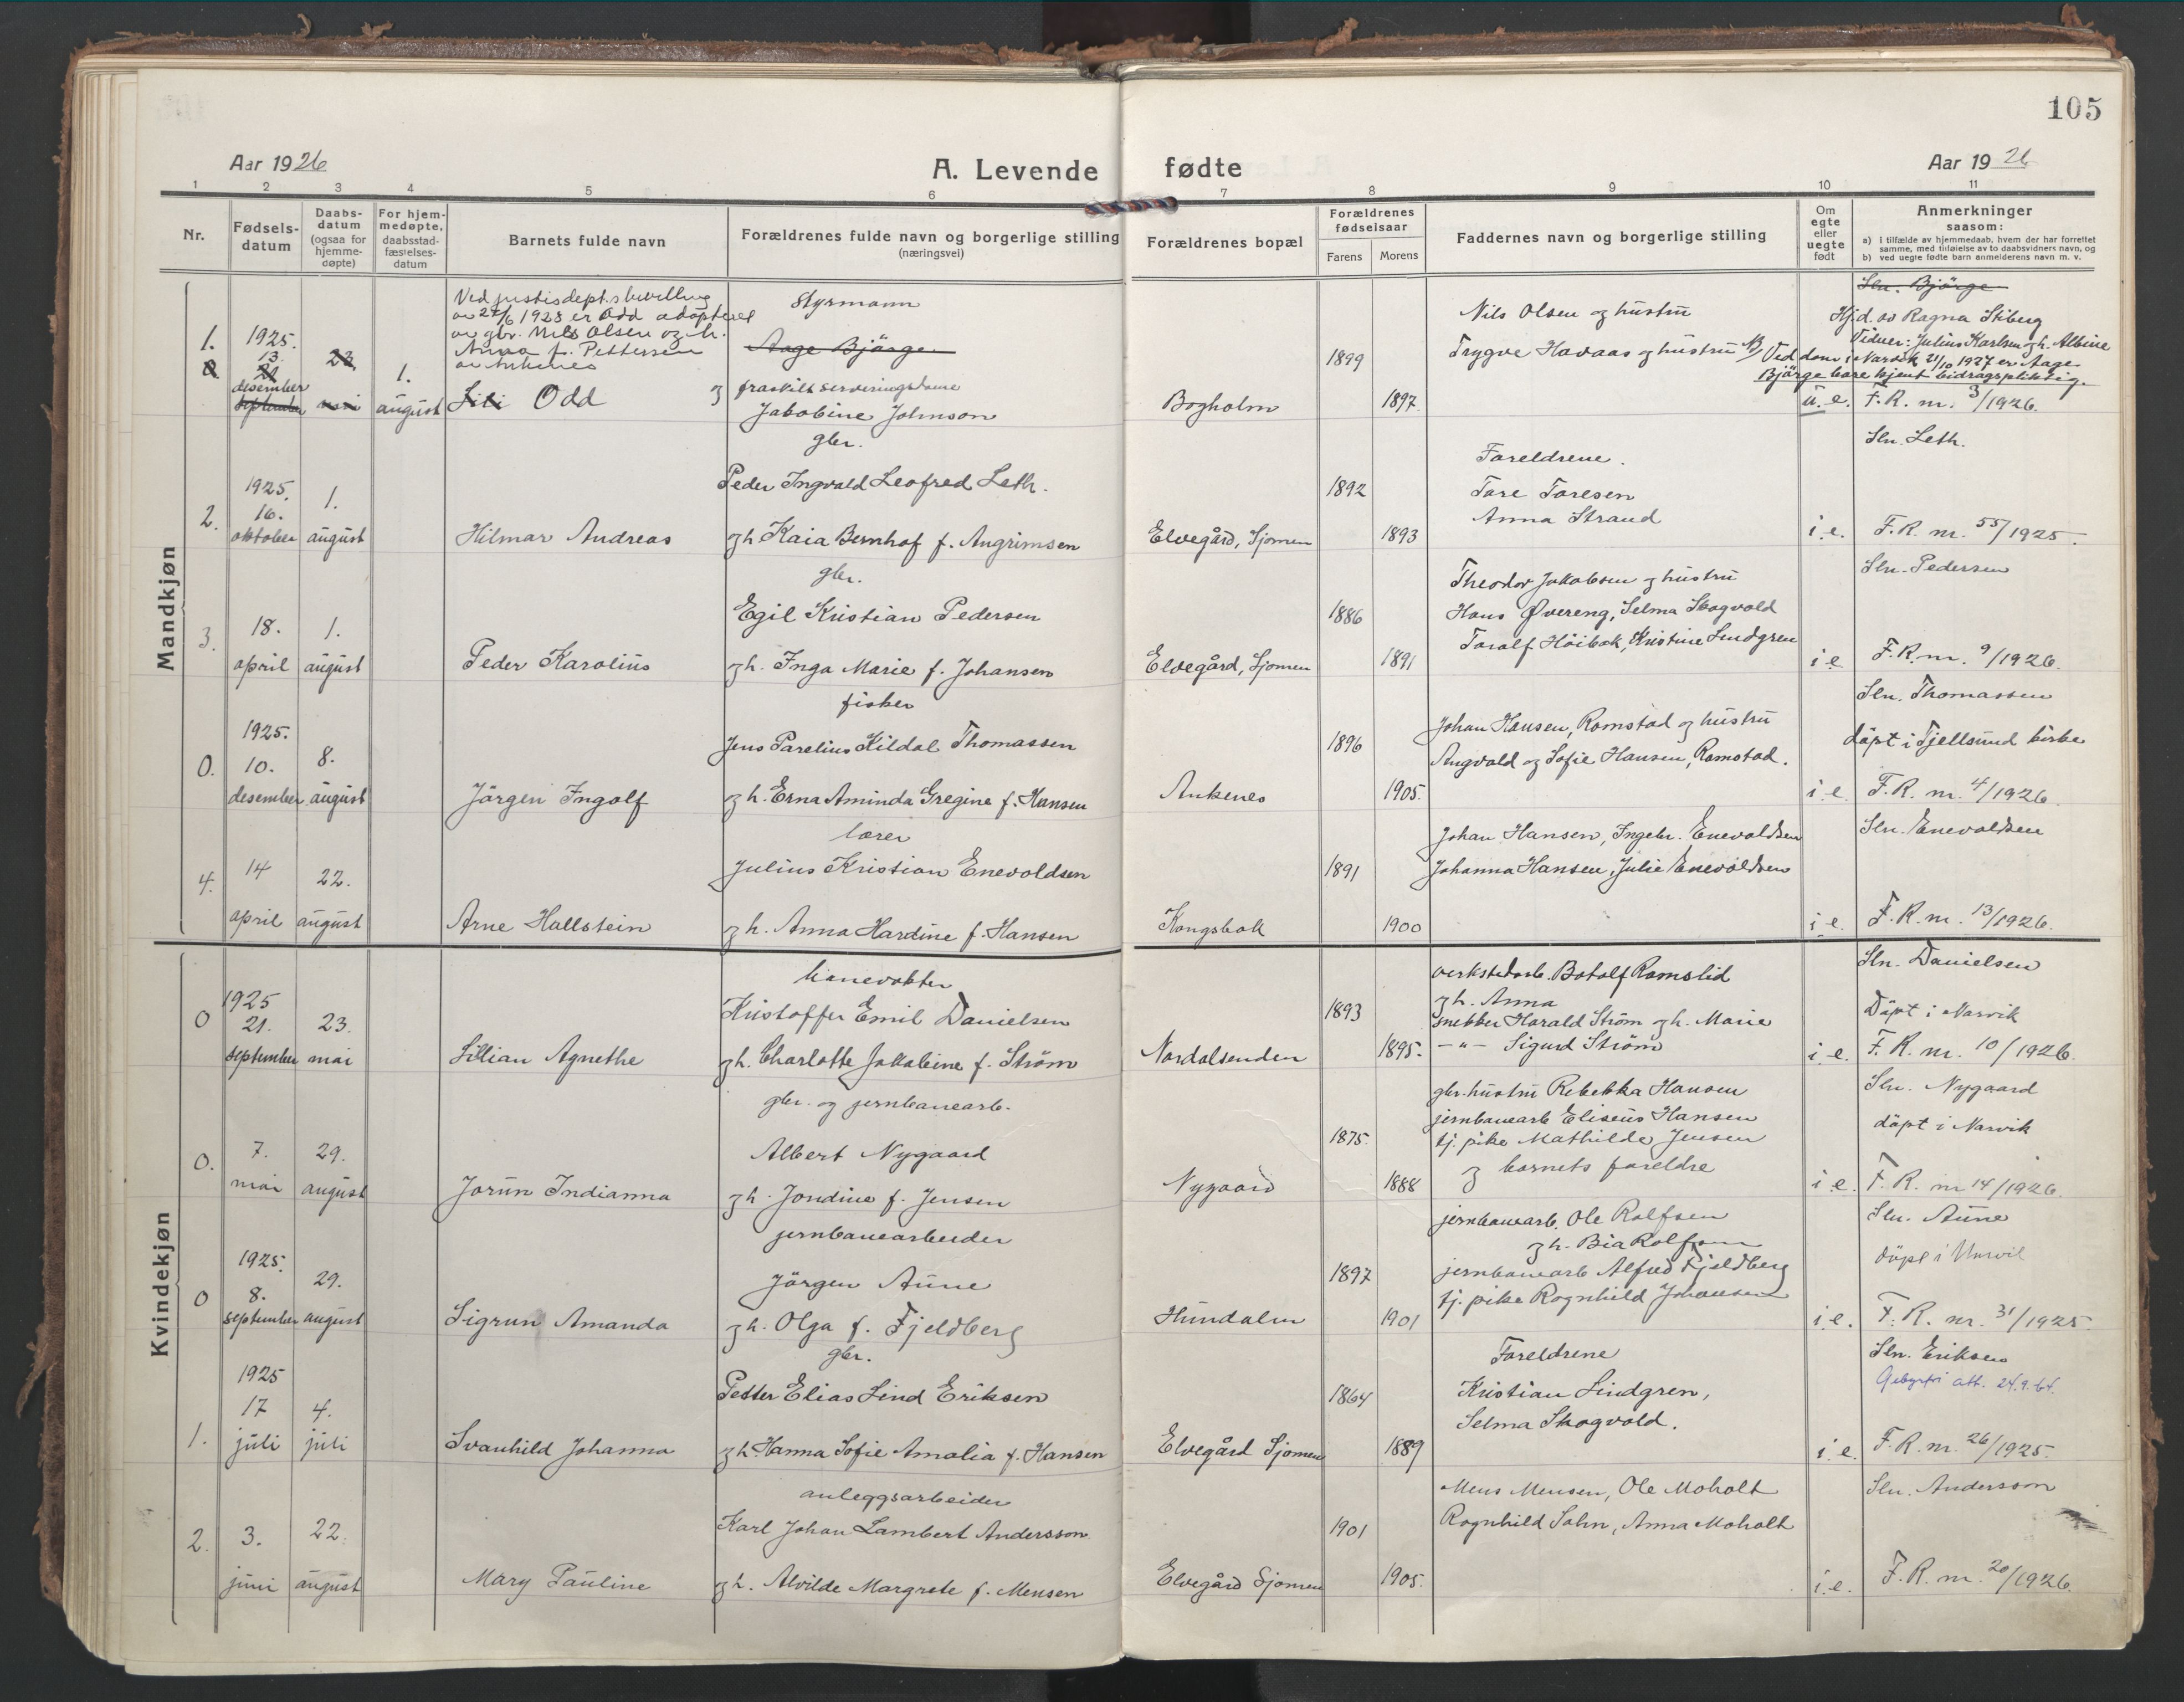 105
Aar 1926
A. Levende fødte
Aar 1926
1 2 3 4 5 6 7 8 9 10 11
Nr.
Fødsels-
datum
Daabs-
datum
(ogsaa for
hjemme-
døpte)
For hjem-
medøpte,
daabsstad-
fæstelses-
datum
Barnets fulde navn
Forældrenes fulde navn og borgerlige stilling
(næringsvei)
Forældrenes bopæl
Forældrenes
fødselsaar
Farens Morens
Faddernes navn og borgerlige stilling
Om
egte
eller
uegte
født
Anmerkninger
saasom:
a) i tilfælde av hjemmedaab, hvem der har forrettet
samme, med tilføielse av to daabsvidners navn, og
b) ved uegte fødte barn anmelderens navn m. v.
Mandkjøn
1.
1925.
13.
desember
1.
august
Ved justisdept.s bevilling
av 27/6 1928 er Odd adopteret
av gbr. Nils Olsen og h.
Anna f. Pettersen
av Ankenes
Lili Odd
Styrmann
Aage Bjørge
og fraskilt serveringsdame
Jakobine Johnson
Bogholm
1899
1897
Nils Olsen og hustru
Trygve Havaas og hustru
u. e.
Sln. Bjørge
Hj.d. av Ragna Stiberg
Vidner: Julius Karlsen og h. Albine
NB Ved dom i Narvik 21/10 1927 er Aage
Bjørge bare kjent bidragspliktig.
F. R. nr. 3/1926.
2.
1925.
16.
oktober
1.
august
Hilmar Andreas
gbr.
Peder Ingvald Leofred Leth.
og h Kaia Bernhof f. Angrimsen
Elvegård, Sjomen
1892
1893
Foreldrene.
Tore Toresen
Anna Strand
i. e.
Sln. Leth.
F. R. nr. 55/1925.
3.
18.
april
1.
august
Peder Karolius
gbr.
Egil Kristian Pedersen
og h. Inga Marie f. Johansen
Elvegård, Sjomen
1886
1891
Theodor Jakobsen og hustru
Hans Øvereng, Selma Skogvold
Toralf Høibak, Kristine Lindgren
i e
Sln. Pedersen
F. R. nr. 9/1926.
0.
1925.
10.
desember
8.
august
Jørgen Ingolf
fisker
Jens Parelius Kildal Thomassen
og h. Erna Aminda Gregine f. Hansen
Ankenes
1896
1905.
Johan Hansen, Ramstad og hustru
Angvald og Sofie Hansen, Ramstad.
i e.
Sln. Thomassen
døpt i Tjellsund kirke
F. R. nr. 4/1926.
4.
14
april
22.
august
Arne Hallstein
lærer
Julius Kristian Enevoldsen
og h. Anna Hardine f. Hansen
Kongsbak
1891
1900
Johan Hansen, Ingebr. Enevoldsen
Johanna Hansen, Julie Enevoldsen
i e.
Sln. Enevoldsen
F. R. nr. 13/1926.
Kvindekjøn
0
1925
21.
september
23.
mai
Lillian Agnethe
banevokter
Kristoffer Emil Danielsen
og h. Charlotte Jakobine f. Strøm
Nordalsenden
1893
1895.
verkstedarb. Botolf Ramslid
og h. Anna
snekker Harald Strøm og h. Marie
-"- Sigurd Strøm
i e.
Sln. Danielsen
Døpt i Narvik
F. R. nr. 10/1926.
0.
7.
mai
29.
august
Jorun Indianna
gbr. og jernbanearb.
Albert Nygaard
og h. Jondine f. Jensen
Nygaard
1875.
1888
gbr.hustru Rebekka Hansen
jernbanearb Eliseus Hansen
tj. pike Mathilde Jensen
og barnets foreldre
i e.
Sln. Nygaard
døpt i Narvik
F. R. nr 14/1926.
0
1925.
8.
september
29.
august
Sigrun Amanda
jernbanearbeider
Jørgen Aune
og h. Olga f. Fjeldberg
Hundalen
1897
1901
jernbanearb. Ole Rolfsen
og h. Bia Rolfsen
jernbanearb Alfred Fjeldberg
tj. pike Ragnhild Johansen
i. e.
Sln. Aune
døpt i Narvik
F. R. nr. 31/1925.
1.
1925
17
juli
4.
juli
Svanhild Johanna
gbr.
Petter Elias Lind Eriksen
og h. Hanna Sofie Amalia f. Hansen
Elvegård Sjomen
1864
1889
Foreldrene
Kristian Lindgren,
Selma Skogvold.
i e.
Sln. Eriksen
Gebyrfri att. 24.9.64.
F. R. nr. 26/1925.
2.
3.
juni
22.
august
Mary Pauline
anleggsarbeider
Karl Johan Lambert Andersson
og h. Alvilde Margrete f. Mensen
Elvegård Sjomen
1901
1905.
Mens Mensen, Ole Moholt
Ragnhild Sahn, Anna Moholt
i. e.
Sln. Andersson
F. R. nr. 20/1926.